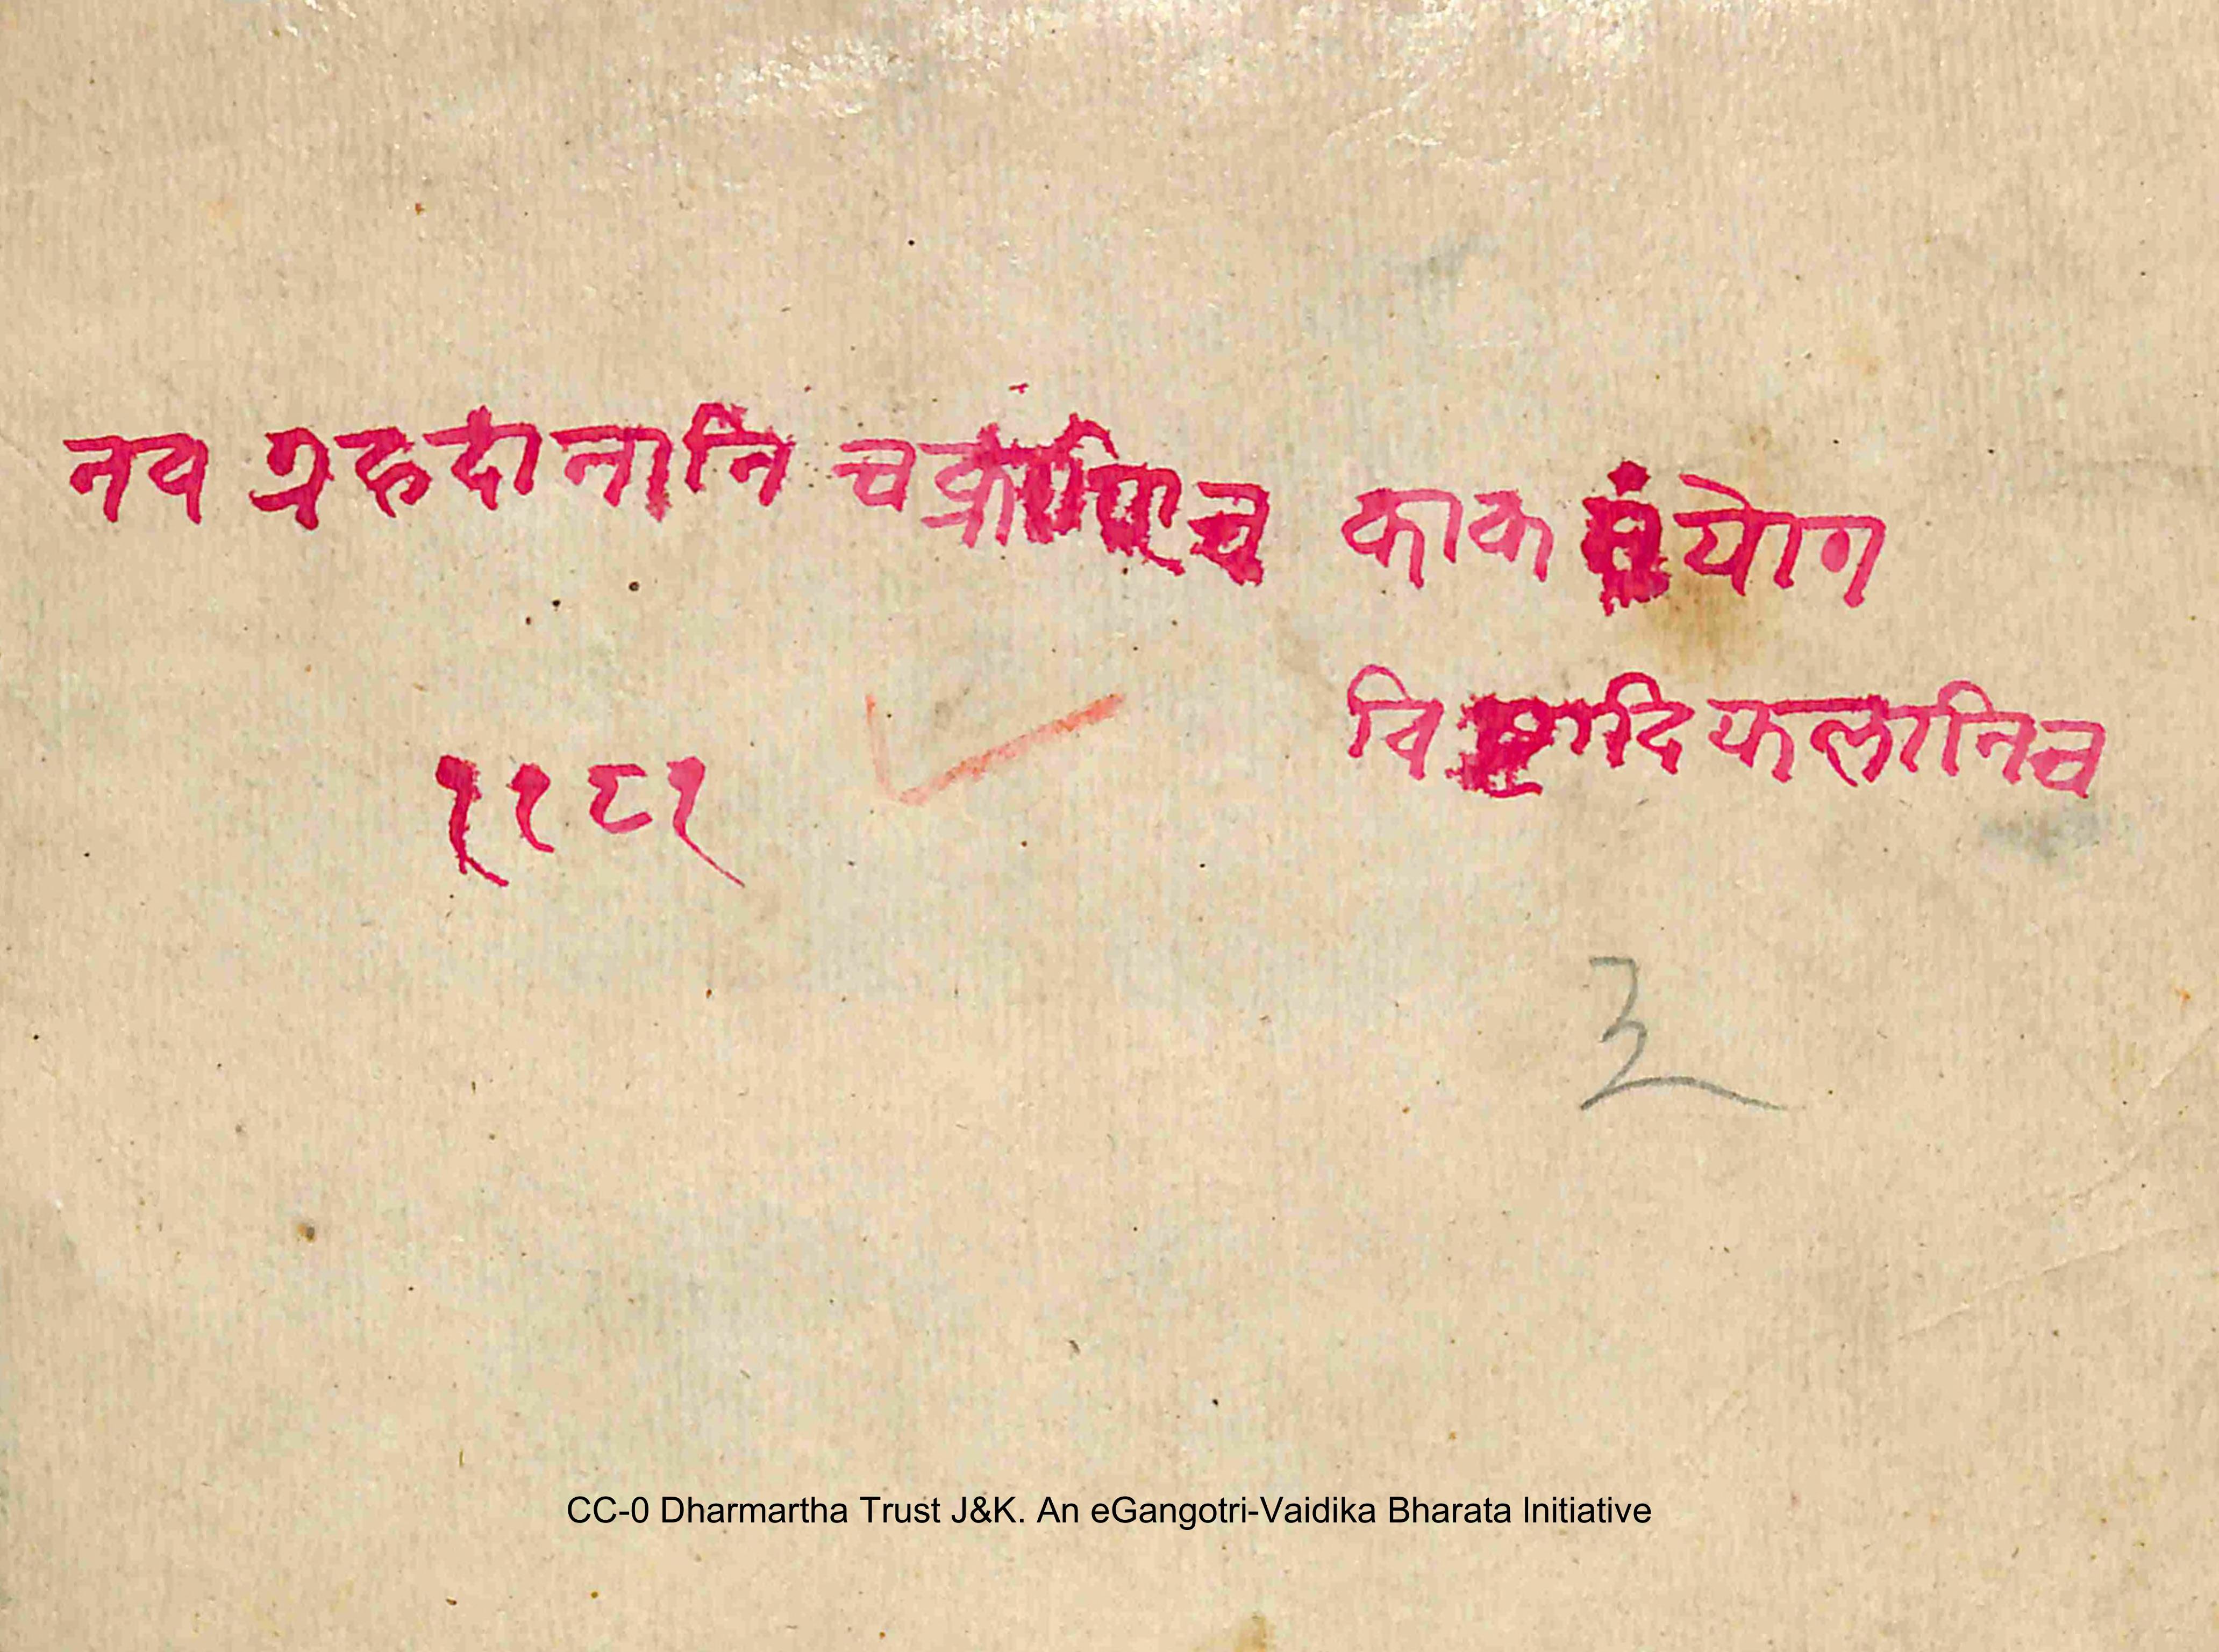 नव ग्रहदानानि चक्राणिच काक संयोग
विष्ठादिफलानिच
११८१
३
CC-0 Dharmartha Trust J&K. An eGangotri-Vaidika Bharata Initiative